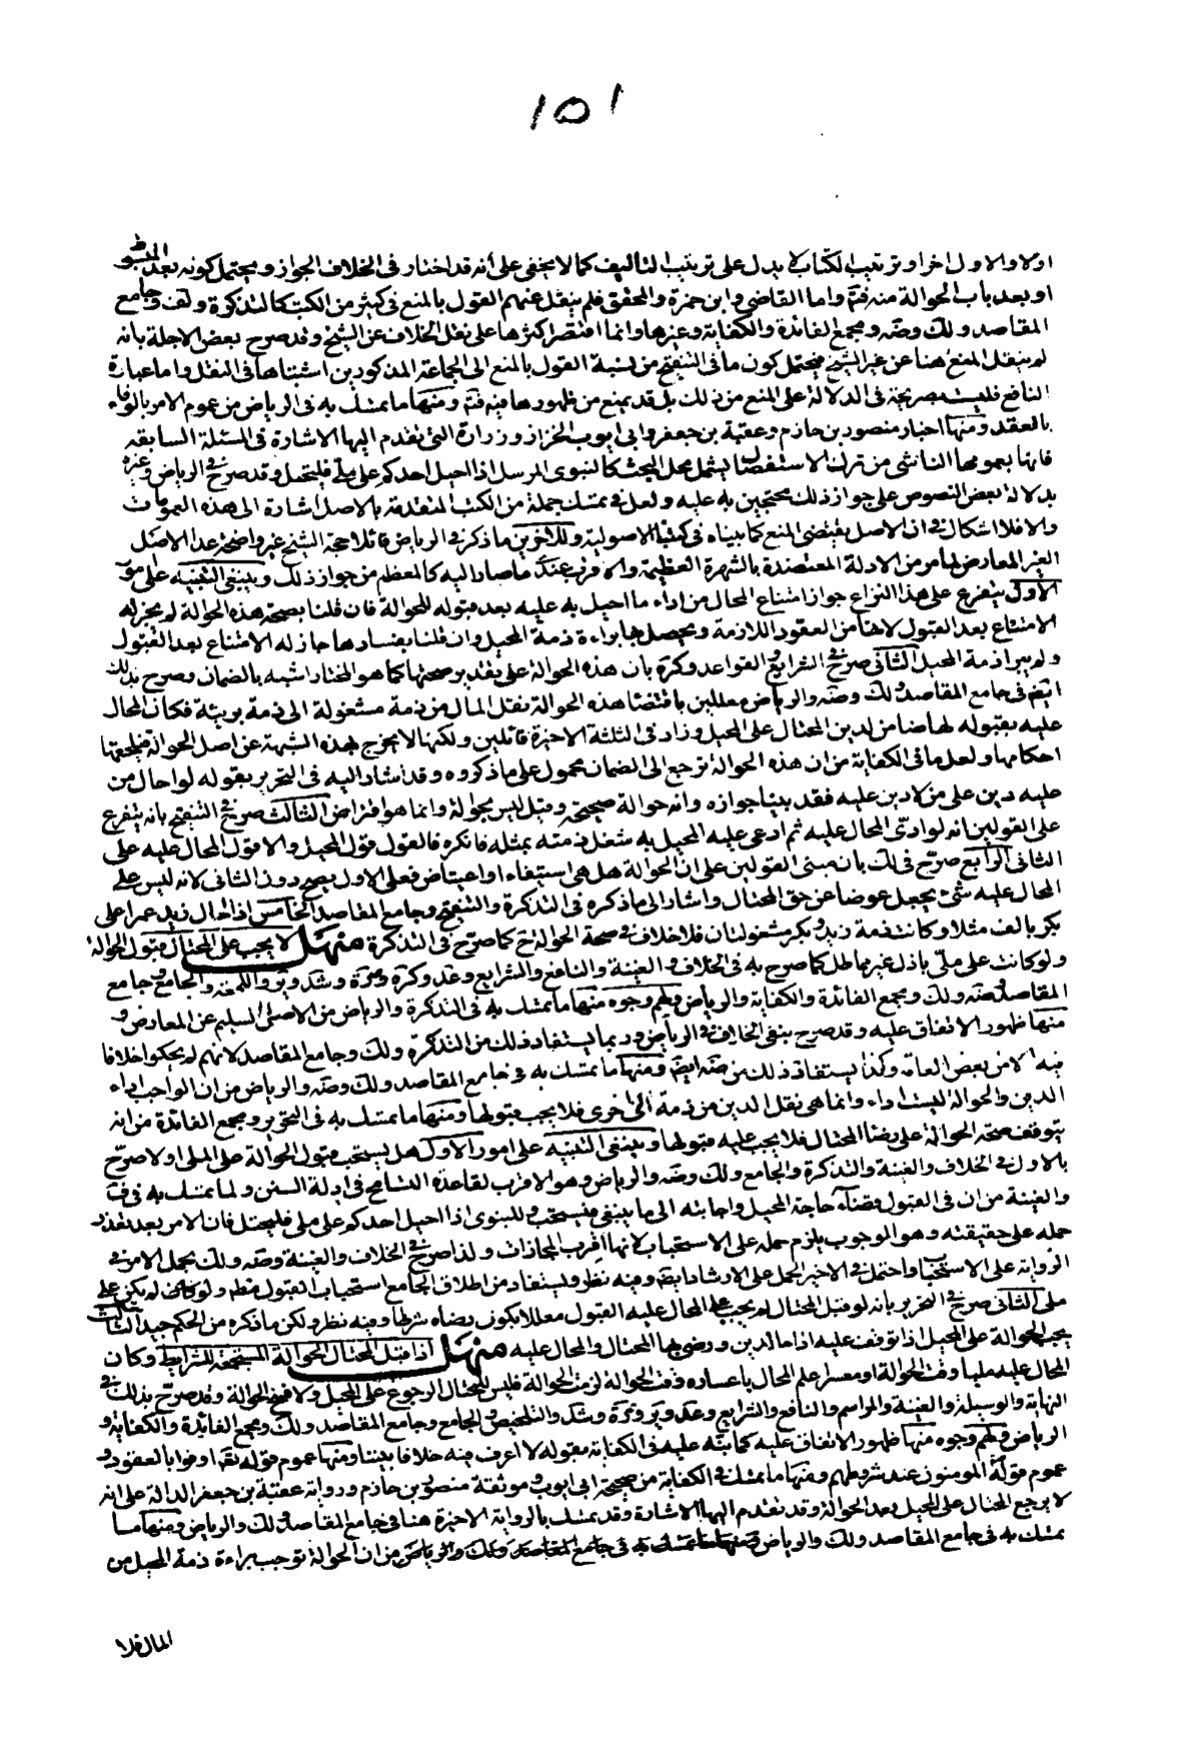 ١٥١
اولا والاول اخرا وترتيب الكتاب لا يدل على ترتيب التاليف كما لا يخفى على أنه قد اختار فى الخلاف الجواز ويحتمل كونه بعد المبسو
او بعد باب الحوالة منه فتم واما القاضي وابن حمزة والمحقق فلم ينقل عنهم القول بالمنع فى كثير من الكتب كالتذكرة ولف وجامع
المقاصد ولك وضه ومجمع الفائدة والكفاية وغيرها وانما اقتصر اكثرها على نقل الخلاف عن الشيخ وقد صرح بعض الاجلة بانه
لم ينقل المنع هنا عن غير الشيخ فيحتمل كون ما فى التنقيح من نسبة القول بالمنع الى الجماعة المذكورين اشتباها فى النقل واما عبارة
النافع فليست صريحة فى الدلالة على المنع من ذلك بل قد يمنع من ظهورها فيه فتم ومنها ما تمسك به فى الرياض من عموم الامر بالوفاء
بالعقد ومنها اخبار منصور بن حازم وعقبة بن جعفر وابى ايوب الخزاز وزرارة التى تقدم اليها الاشارة فى المسئلة السابقه
فانها بعمومها الناشى من ترك الاستفصال يشمل محل البحث كالنبوى المرسل اذا احيل احدكم على ملى فليحتل وقد صرح فى الرياض وغيره
بدلالة بعض النصوص على جواز ذلك محتجين به عليه ولعل فى تمسك جملة من الكتب المتقدمة بالاصل اشارة الى هذه العمومات
والا فلا اشكال فى ان الاصل يقتضى المنع كما بيناه فى كتبنا الاصولية وللاخرين ما ذكر فى الرياض قائلا حجة الشيخ غير واضحة عدا الاصل
الغير المعارض لما مر من الادلة المعتضدة بالشهرة العظيمة والاقرب عندى ما صار اليه كالمعظم من جواز ذلك وينبغى التنبيه على امور
الاول يتفرع على هذا النزاع جواز امتناع المحال من اداء ما احيل به عليه بعد قبوله للحوالة فان قلنا بصحة هذه الحوالة لم يجز له
الامتناع بعد القبول لانها من العقود اللازمة ويحصل بها براءة ذمة المحيل وان قلنا بفسادها جاز له الامتناع بعد القبول
ولم يبرا ذمة المحيل الثانى صرح فى الشرايع والقواعد وكرة بان هذه الحوالة على تقدير صحتها كما هو المختار اشبه بالضمان وصرح بذلك
ايضا فى جامع المقاصد ولك وضه والرياض معللين باقتضاء هذه الحوالة نقل المال من ذمة مشغولة الى ذمة بريئة فكان المحال
عليه بقبوله لها ضامن لدين المحتال على المحيل وزاد فى الثلثة الاخيرة قائلين ولكنها لا يخرج بهذه الشبهة عن اصل الحوالة فيلحقها
احكامها ولعل ما فى الكفاية من ان هذه الحوالة ترجع الى الضمان محمول على ما ذكروه وقد اشار اليه فى التحرير بقوله لو احال من
عليه دين على من لا دين عليه فقد بينا جوازه وانه حوالة صحيحة وقيل ليس بحوالة وانما هو اقتراض الثالث صرح فى التنقيح بانه يتفرع
على القولين انه لو ادى المحال عليه ثم ادعى عليه المحيل به شغل ذمته بمثله فانكره فالقول قول المحيل والا قول المحال عليه على
الثانى الرابع صرح فى لك بان مبنى القولين على ان الحوالة هل هى استيفاء او اعتياض فعلى الاول يصح دون الثانى لانه ليس على
المحال عليه شئ يجعل عوضا عن حق المحتال واشار الى ما ذكره فى التذكرة والتنقيح وجامع المقاصد الخامس اذا احال زيد عمرا على
بكر بالف مثلا وكانت ذمة زيد وبكر مشغولتان فلا خلاف فى صحة الحوالة ح كما صرح فى التذكرة منهل لا يجب على المحتال قبول الحوالة
ولو كانت على ملى باذل غير مماطل كما صرح به فى الخلاف والغنية والنافع والشرايع وعد وكرة وير وشد وير واللمعة والجامع وجامع
المقاصد وضه ولك ومجمع الفائدة والكفاية والرياض ولهم وجوه منها ما تمسك به فى التذكرة والرياض من الاصل السليم عن المعارض و
منها ظهور الاتفاق عليه وقد صرح بنفى الخلاف فى الرياض وربما يستفاد ذلك من التذكرة ولك وجامع المقاصد لانهم لم يحكوا خلافا
فيه الا من بعض العامة وكذا يستفاد ذلك من ضه ايضا ومنها ما تمسك به فى جامع المقاصد ولك وضه والرياض من ان الواجب اداء
الدين والحوالة ليست اداء وانما هى نقل الدين من ذمة الى اخرى فلا يجب قبولها ومنها ما تمسك به فى التحرير ومجمع الفائدة من انه
يتوقف صحة الحوالة على رضا المحتال فلا يجب عليه قبولها وينبغى التنبيه على امور الاول هل يستحب قبول الحوالة على الملى اولا صرح
بالاول فى الخلاف والغنية والتذكرة والجامع ولك وضه والرياض وهو الاقرب لقاعدة التسامح فى ادلة السنن ولما تمسك به فى ف
والغنية من ان فى القبول قضاء حاجة المحيل واجابته الى ما يبتغى فيستحب وللنبوى اذا احيل احدكم على ملى فليحتل فان الامر بعد تعذر
حمله على حقيقته وهو الوجوب يلزم حمله على الاستحباب لانها اقرب المجازات ولذا صرح فى الخلاف والغنية وضه ولك بحمل الامر فى
الرواية على الاستحباب واحتمل فى الاخير الحمل على الارشاد ايضا وفيه نظر ويستفاد من اطلاق الجامع استحباب القبول مطلقا ولو كان لم يكن على
ملى الثانى صرح فى التحرير بانه لو قبل المحتال لم يجب على المحال عليه القبول معللا بكون رضاه شرطا وفيه نظر ولكن ما ذكره من الحكم جيد الثالث
يجب الحوالة على المحيل اذا توقف عليه اداء الدين ورضى بها المحتال والمحال عليه منهل اذا قبل المحتال الحوالة المستجمعة للشرايط وكان
المحال عليه مليا وقت الحوالة او معسرا علم المحال باعساره وقت الحوالة لزمت الحوالة فليس للمحتال الرجوع على المحيل ولا فسخ الحوالة وقد صرح بذلك فى
النهاية والوسيلة والغنية والمراسم والنافع والشرايع وعد وير وكرة وشد والتلخيص والجامع وجامع المقاصد ولك ومجمع الفائدة والكفاية و
الرياض ولهم وجوه منها ظهور الاتفاق عليه كما نبه عليه فى الكفاية بقوله لا اعرف فيه خلافا بيننا ومنها عموم قوله تعالى اوفوا بالعقود و
عموم قوله المومنون عند شروطهم ومنها ما تمسك فى الكفاية من صحيحة ابى ايوب وموثقة منصور بن حازم ورواية عقبة بن جعفر الدالة على انه
لا يرجع المحتال على المحيل بعد الحوالة وقد تقدم اليها الاشارة وقد تمسك بالرواية الاخيرة هنا فى جامع المقاصد ولك والرياض ومنها ما
تمسك به فى جامع المقاصد ولك والرياض ومنها ما تمسك به فى جامع المقاصد ولك والرياض من ان الحوالة توجب براءة ذمة المحيل من
المال فلا